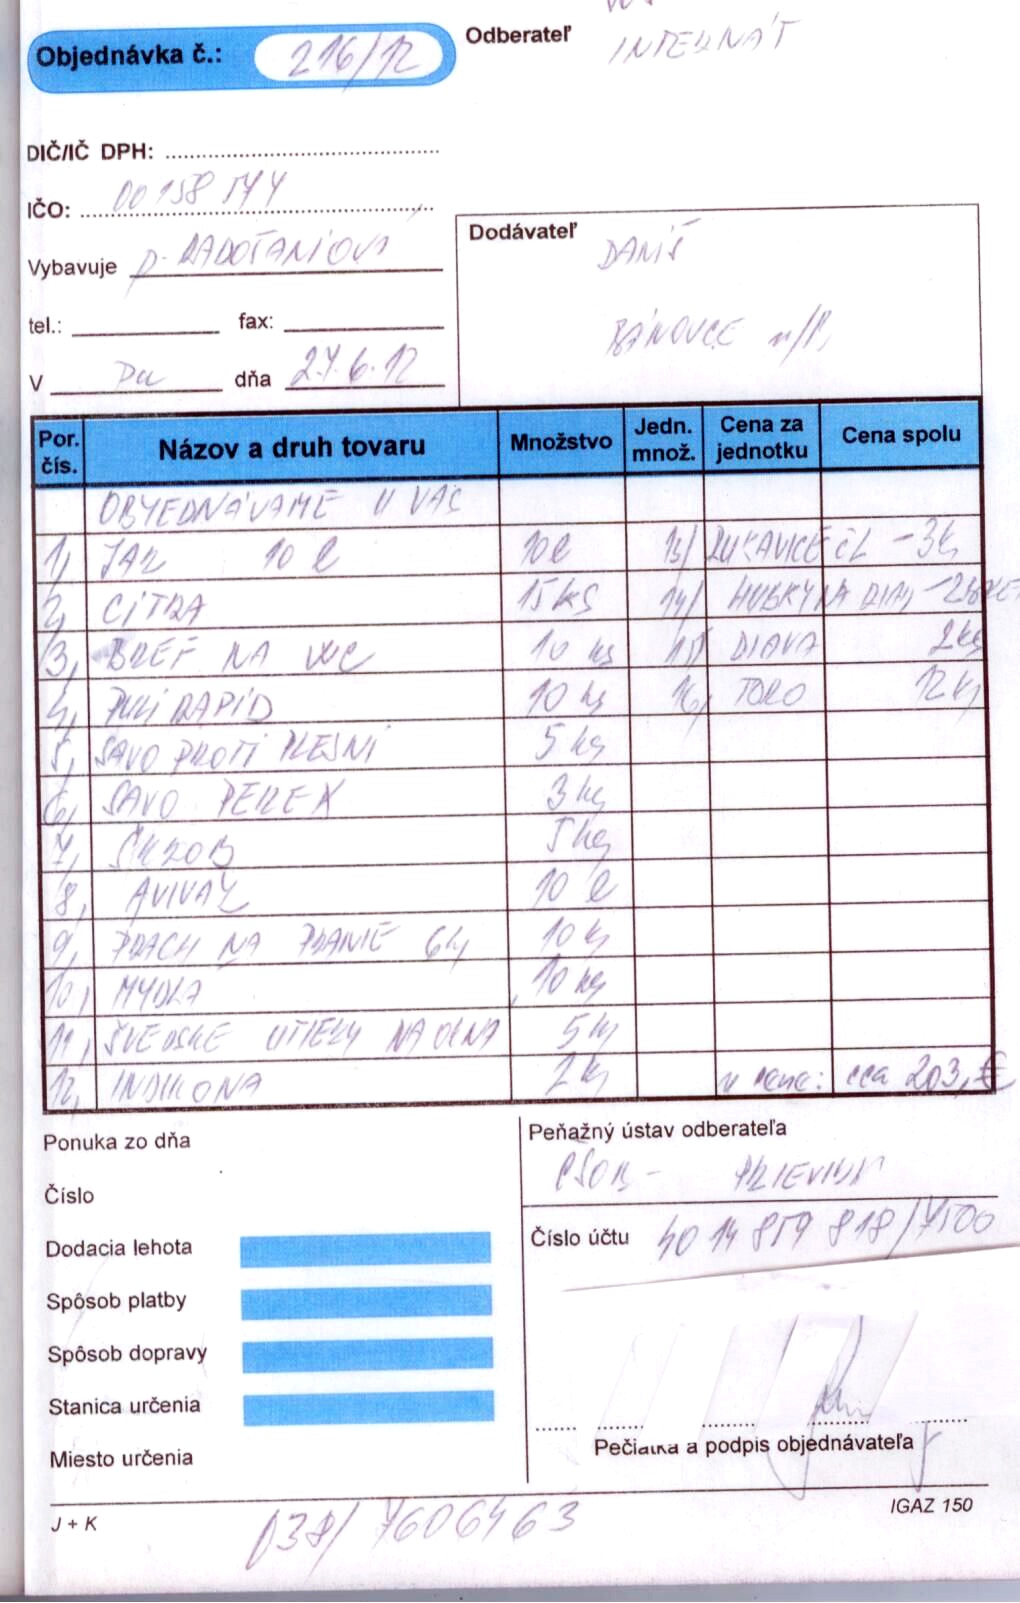 Objednávka č.: 216/12
Odberateľ
INTERNÁT
DIČ/IČ DPH:
IČO:
Vybavuje
Dodávateľ
DANIŠ
BÁNOVCE n/B,
tel.: fax:
V dňa 27.6.12
Por. čís. Názov a druh tovaru Množstvo Jedn. množ. Cena za jednotku Cena spolu
OBJEDNÁVAME U VÁS
1, JAR 10 l 10 l 13/ RUKAVICE č L - 3 ks
2, CITRA 15 ks 14/ HUBKY NA RIAD
3, BREF NA WC 10 ks 15/ DIAVA 2 ks
4, PULIRAPID 10 ks 16, TORO 12 ks
5, SAVO PROTI PLESNI 5 ks
6, SAVO PEREX 3 ks
7, ŠKROB 5 ks
8, AVIVÁŽ 10 l
9, PRACH NA PRANIE 6 kg 10 ks
10, MYDLÁ 10 ks
11, ŠVEDSKE UTIERKY NA OKNÁ 5 ks
12, INDULONA 2 ks v cene: cca 203,- €
Ponuka zo dňa
Peňažný ústav odberateľa
ČSOB - PRIEVIDZA
Číslo
Dodacia lehota
Číslo účtu
Spôsob platby
Spôsob dopravy
Stanica určenia
Pečiatka a podpis objednávateľa
Miesto určenia
J + K
IGAZ 150
038/7606463